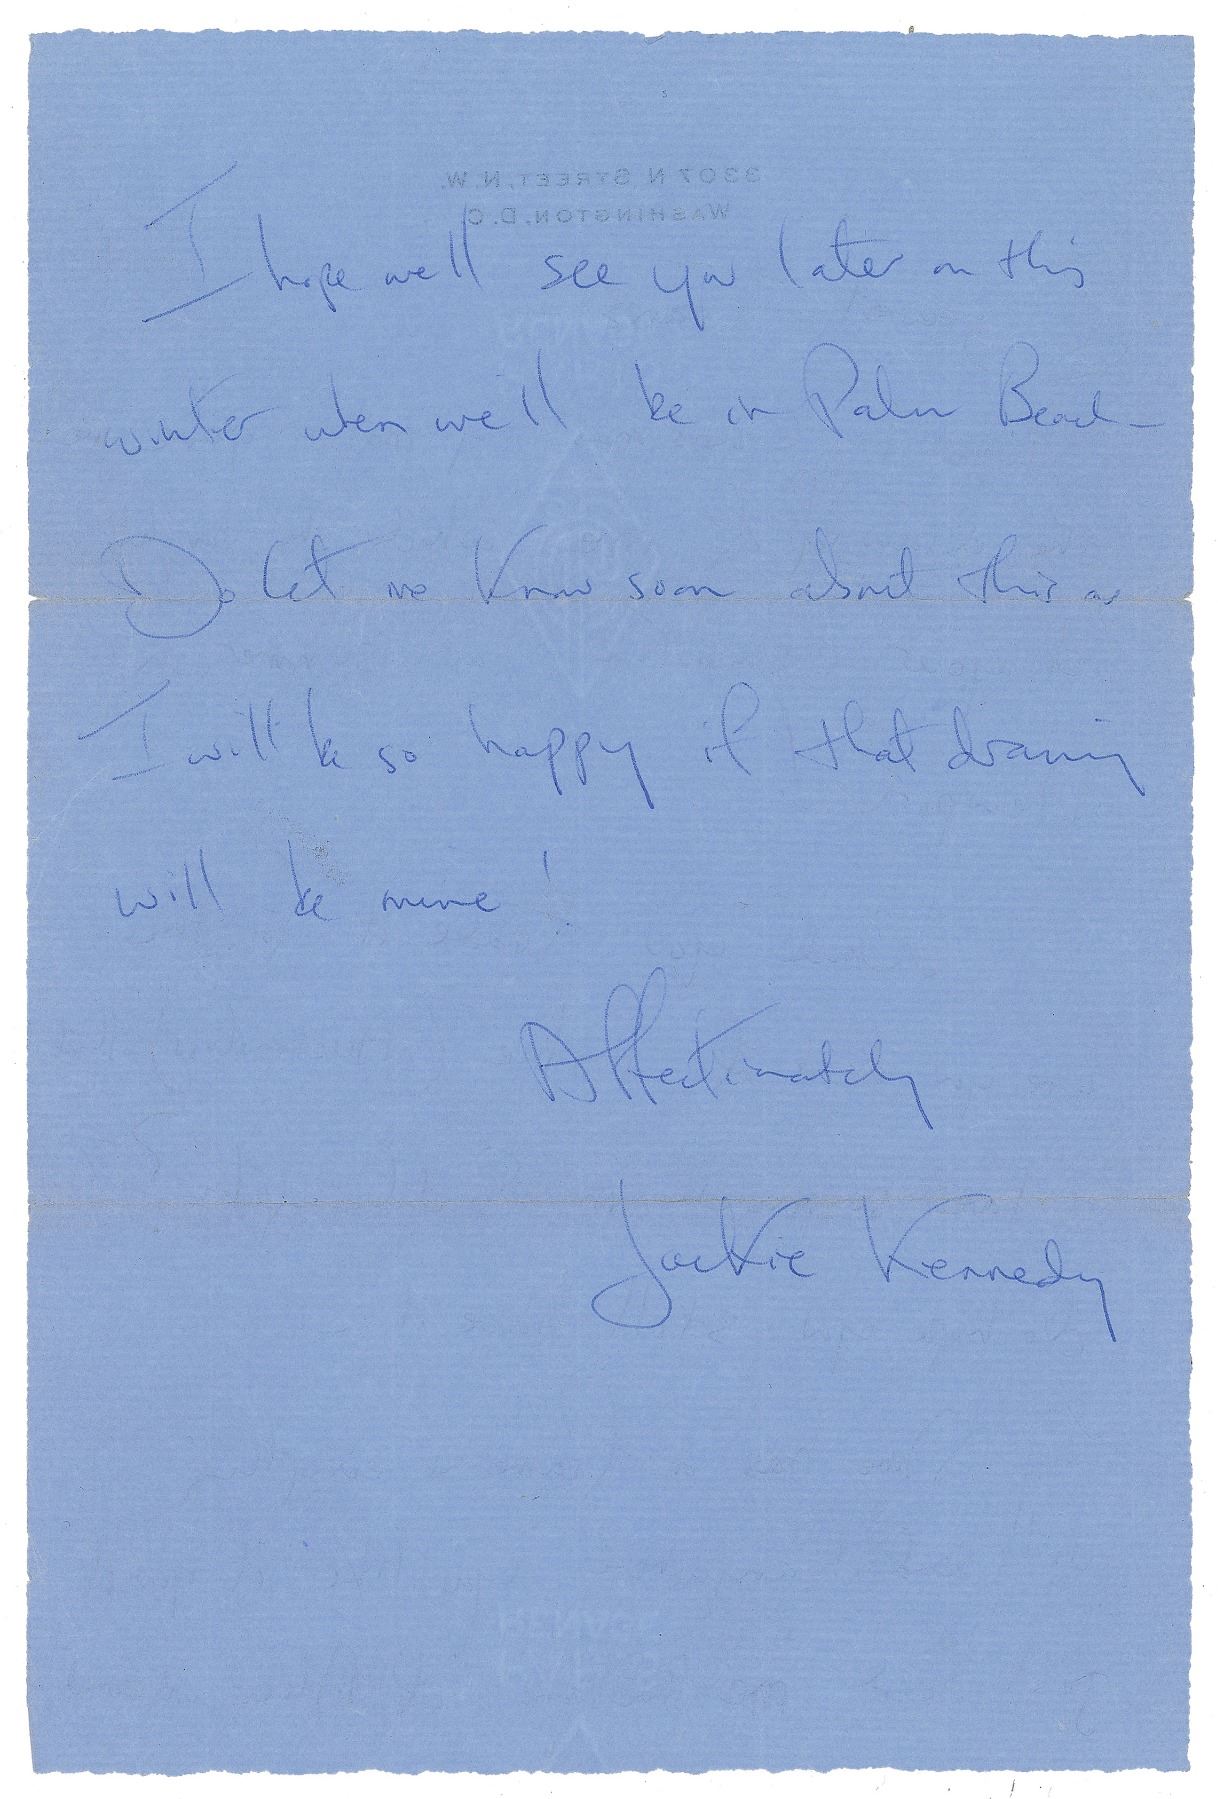 3307 N STREET, N.W.
WASHINGTON, D.C.
I hope we'll see you later on this
winter when we'll be in Palm Beach -
Do let me know soon about this as
I will be so happy if that drawing
will be mine!
Affectionately
Jackie Kennedy